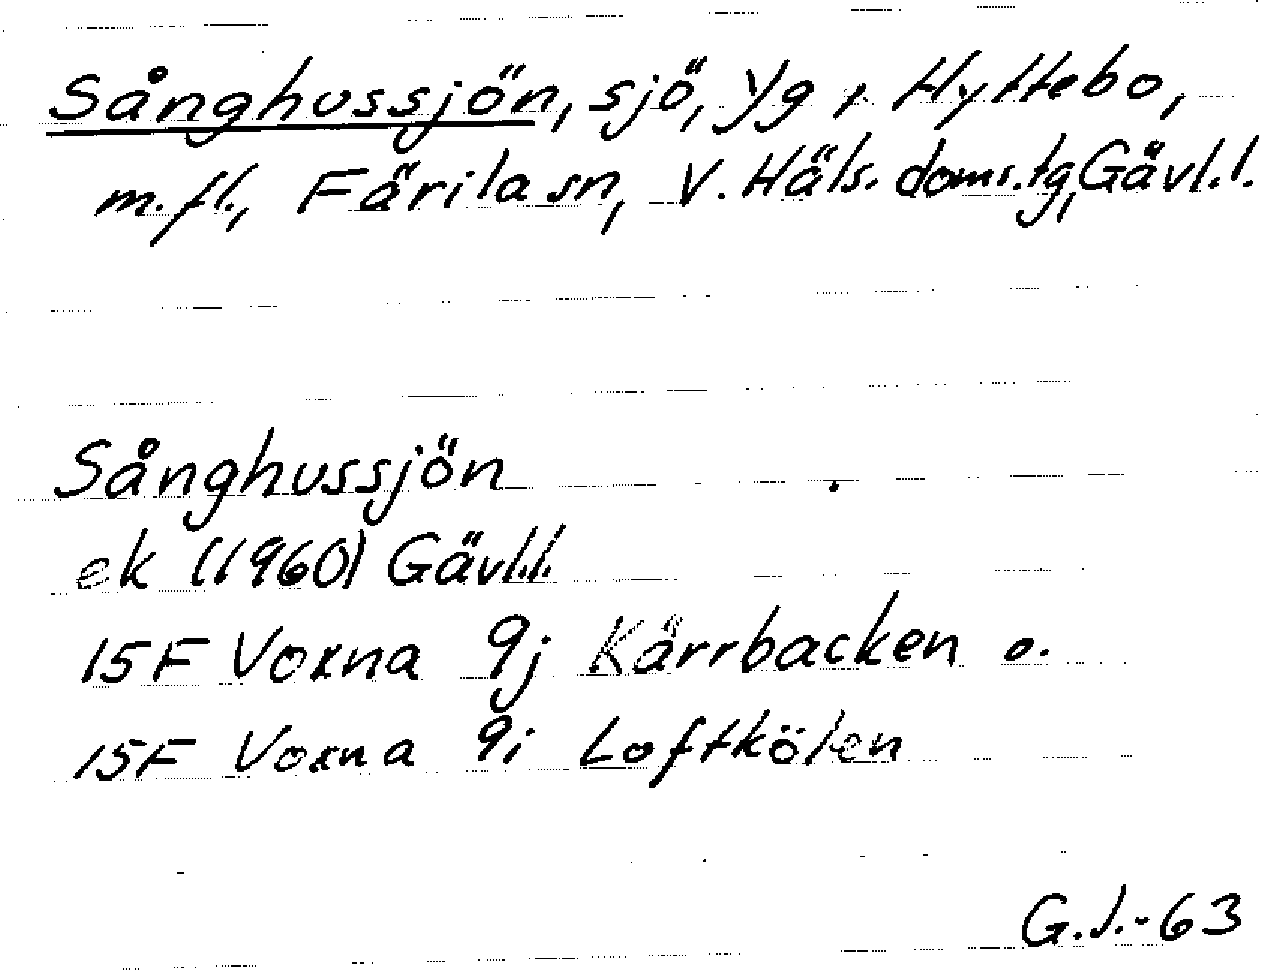 Sånghussjön, sjö, yg i Hyttebo,
m.fl., Färila sn, V. Häls. doms.lg, Gävl.l.
Sånghussjön
ek (1960) Gävl.l.
15F Voxna 9j Kärrbacken o.
15F Voxna 9i Loftkölen
G.J.-63